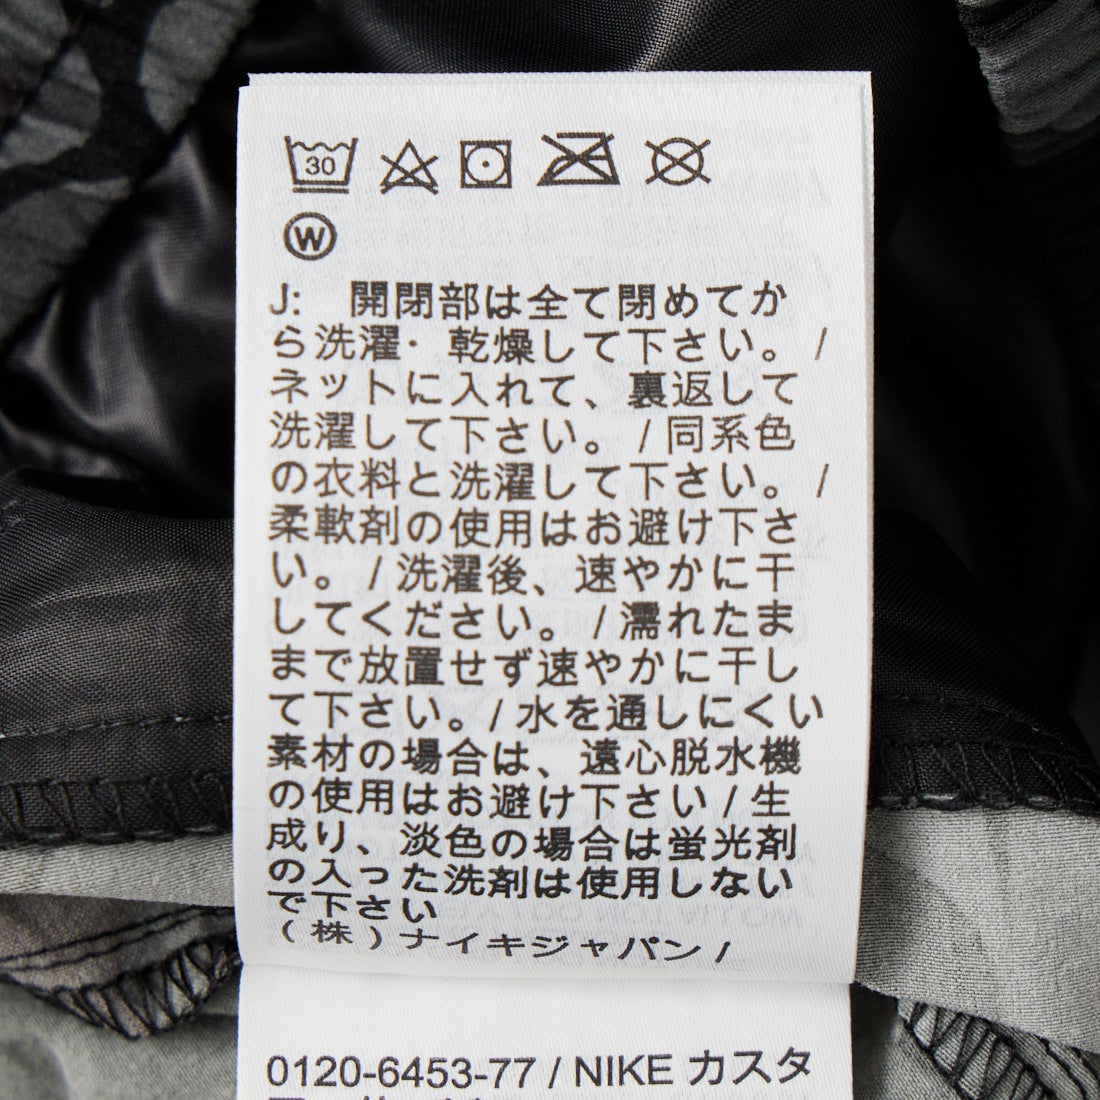 30
W
J: 開閉部は全て閉めてか
ら洗濯・乾燥して下さい。/
ネットに入れて、裏返して
洗濯して下さい。/ 同系色
の衣料と洗濯して下さい。/
柔軟剤の使用はお避け下さ
い。/ 洗濯後、速やかに干
してください。/ 濡れたま
まで放置せず速やかに干し
て下さい。/ 水を通しにくい
素材の場合は、遠心脱水機
の使用はお避け下さい / 生
成り、淡色の場合は蛍光剤
の入った洗剤は使用しない
で下さい
(株)ナイキジャパン /
0120-6453-77 / NIKE カスタ